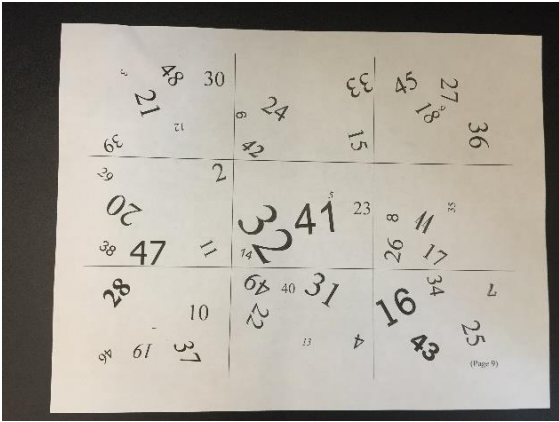 3 48 30
21
12
39
33
24
6
42 15
45 27
18 9
36
29 2
20
38 47 11
5
32 41 23
14
8 44 35
26 17
28
10
46 19 37
49 40 31
22
13 4
34 7
16
25
43
(Page 9)